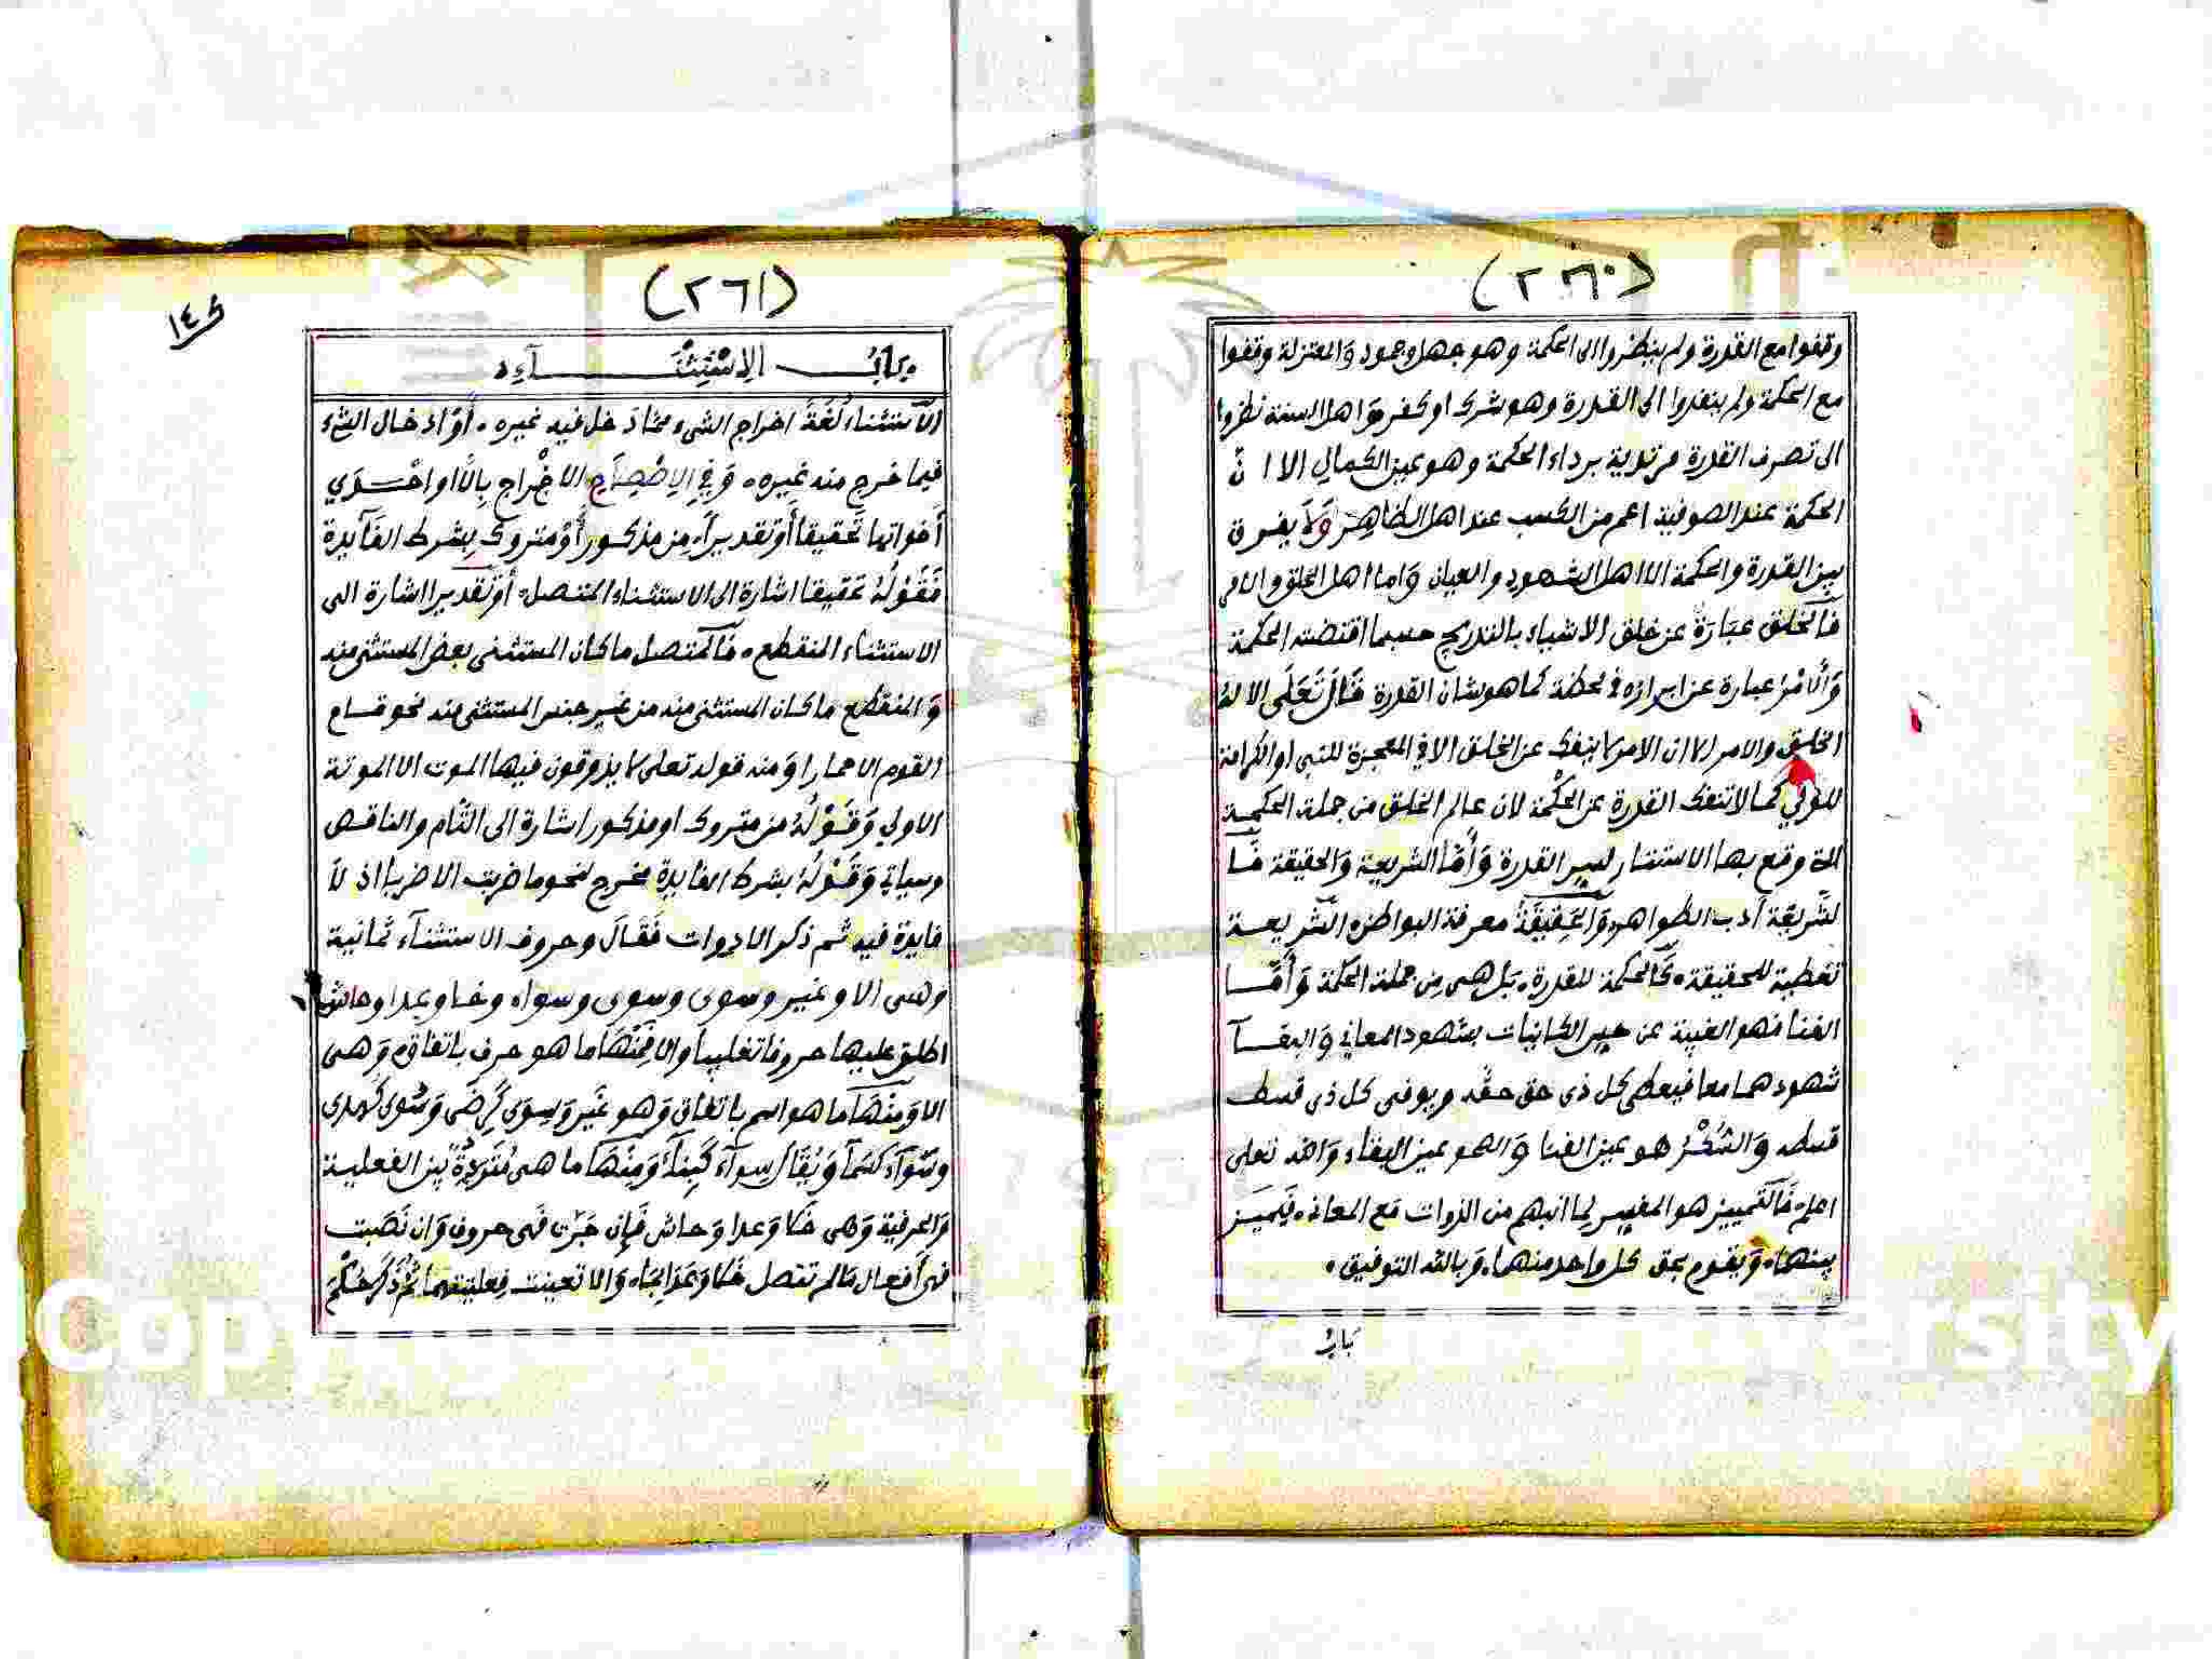 (٢٦٠)
وقفوا مع القدرة ولم ينظروا الى الحكمة وهو جهل وجمود والمعتزلة وقفوا
مع الحكمة ولم ينفذوا الى القدرة وهو شرك او كفر وَاهل السنة نظروا
الى تصرف القدرة مرتدية برداء الحكمة وهو عين الكمالِ الا انّ
الحكمة عند الصوفية اعم من الكسب عند اهل الظاهِر وَلَا يفرق
بين القدرة والحكمة الا اهل الشهود والعيان وَاما اهل الخلق والامر
فَالخلق عبَارَة عن خلق الاشياء بالتدريج حسبما اقتضته الحكمة
وَالامْرُ عبارة عن ابرازه في لحظة كما هو شان القدرة قَالَ تَعَلَى الا لهُ
الخلق والامر الا ان الامر لا ينفك عن الخلق الا في المعجزة للنبي او الكرامة
للولي كما لا تنفك القدرة عن الحكْمة لان عالم الخلق من جملة الحكمة
التي وقع بها الاستتار لسِر القدرة وَأمّا الشريعة وَالحقيقة فَا
لشّريعَة أدب الظواهر وَالحَقِيقَة معرفة البواطن الشّريعة
تغطية للحقيقة كَالحكمة للقدرة بَل هى مِن جملة الحكمة وَأمّا
الفنا فهو الغيبة عن حس الكاينات بشهود المعاني وَالبقآ
شهودهما معا فيعطى كل ذى حق حقه ويوفى كل ذى قسط
قسطه وَالسُّكْرُ هو عين الفنا وَالصحو عين البقاء وَالله تعلى
اعلم فَالتمييز هو المفسر لِما انبهم من الذوات مَع المعاني فَيميّز
بينهمَا وَيقوم بحق كل واحد منهما وَبالله التوفيق
بَابُ
(٢٦١)
بَابُ الاسْتِثْنَآءِ
الاستثناءُ لُغَةً اخراج الشىء مما دَخل فيه غيره أَوْ ادخال الشىء
فيما خرج منه غيره وَفي الاِصْطِلَاحِ الاخْراج بِالّا او احْدَي
أخواتها تَحقيقا أَوْ تقديراً مِن مذكور أَوْ متروك بِشرط الفَآيدة
فَقَوْلُهُ تحقيقا اشارة الى الاستثناء المتصل أوْ تقديرا اشارة الى
الاستثناء المنقطع فَالمتصل ما كان المستثنى بعض المستثنى منه
وَالمنقطع ما كان المستثنى منه من غير جنس المستثنى منه نحو قام
القوم الا حمارا وَمنه قوله تعلى لا يذوقون فيها الموت الا الموتة
الاولي وَقَوْلُهُ من متروك او مذكور اشارة الى التّام والناقص
وسياتي وَقَوْلُهُ بشرط الفايدة مخرج لنحو ما ضربت الا ضربا اذ لَا
فايدة فيه ثم ذكر الادوات فَقَالَ وحروف الاستثنآء ثمانية
وهى الا وغير وسوى وسوى وسواء وخلا وعدا وحاش
اطلق عليها حروفا تغليبا والا فَمِنْهَا ما هو حرف باتفاق وَهى
الا وَمِنْهَا ما هو اسم باتفاق وَهو غَير وَسِوَى كَرِضَى وَسُوى كَهدى
وسَوَآء كَسَمآ وَيُقَالُ سِوآء كَبِنَآء وَمِنْهَا ما هى مُتَرَدِّدَةٌ بين الفعلية
وَالحرفية وَهى خَلا وَعدا وَحاش فَإن جَرّت فَهى حروف وَان نَصَبت
فهى أفعال مَا لم تتصل خَلا وَعَدَا بِمَا وَالا تعينت فِعليتهما ثُمّ ذَكَرَ حُكْمَ